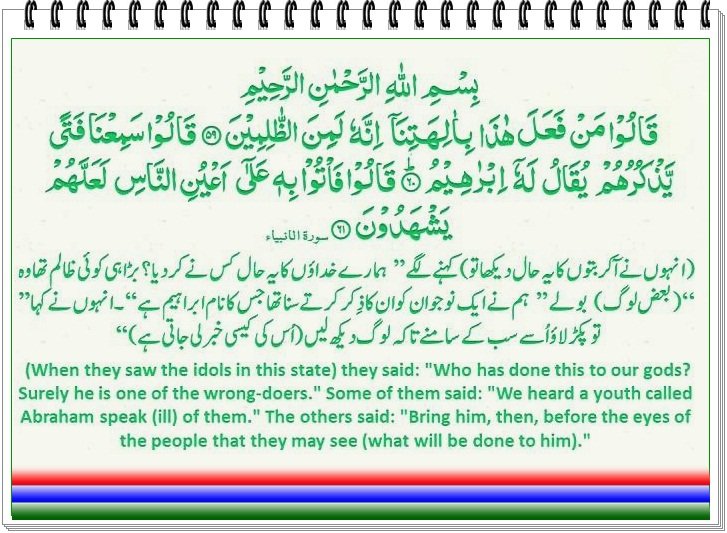 بِسْمِ اللهِ الرَّحْمٰنِ الرَّحِيْمِ
قَالُوْا مَنْ فَعَلَ هٰذَا بِاٰلِهَتِنَاۤ اِنَّهٗ لَمِنَ الظّٰلِمِيْنَ ۝۵۹ قَالُوْا سَمِعْنَا فَتًى
يَّذْكُرُهُمْ يُقَالُ لَهٗۤ اِبْرٰهِيْمُ ؕ۝۶۰ قَالُوْا فَاْتُوْا بِهٖ عَلٰۤى اَعْيُنِ النَّاسِ لَعَلَّهُمْ
يَشْهَدُوْنَ ۝۶۱ سورة الانبياء
(انہوں نے آکر بتوں کا یہ حال دیکھا تو) کہنے لگے ”ہمارے خداؤں کا یہ حال کس نے کر دیا؟ بڑا ہی کوئی ظالم تھا وہ
“(بعض لوگ) بولے ”ہم نے ایک نوجوان کو ان کا ذِکر کرتے سنا تھا جس کا نام ابراہیم ہے“۔ انہوں نے کہا”
تو پکڑ لاؤ اُسے سب کے سامنے تاکہ لوگ دیکھ لیں (اُس کی کیسی خبر لی جاتی ہے)“
(When they saw the idols in this state) they said: "Who has done this to our gods?
Surely he is one of the wrong-doers." Some of them said: "We heard a youth called
Abraham speak (ill) of them." The others said: "Bring him, then, before the eyes of
the people that they may see (what will be done to him)."